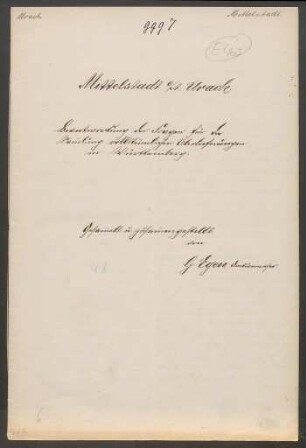 Urach. Mittelstadt.
9997
Mittelstadt O/A. Urach
Beantwortung der Fragen für die
Sammlung volkstümlicher Überlieferungen
in Württemberg.
Gesammelt u. zusammengestellt
von
G. Egere